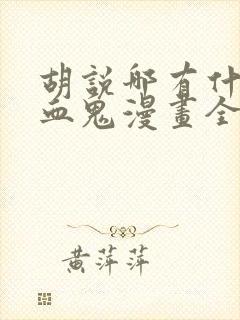 胡說哪有什
血鬼漫畫全
黃萍萍